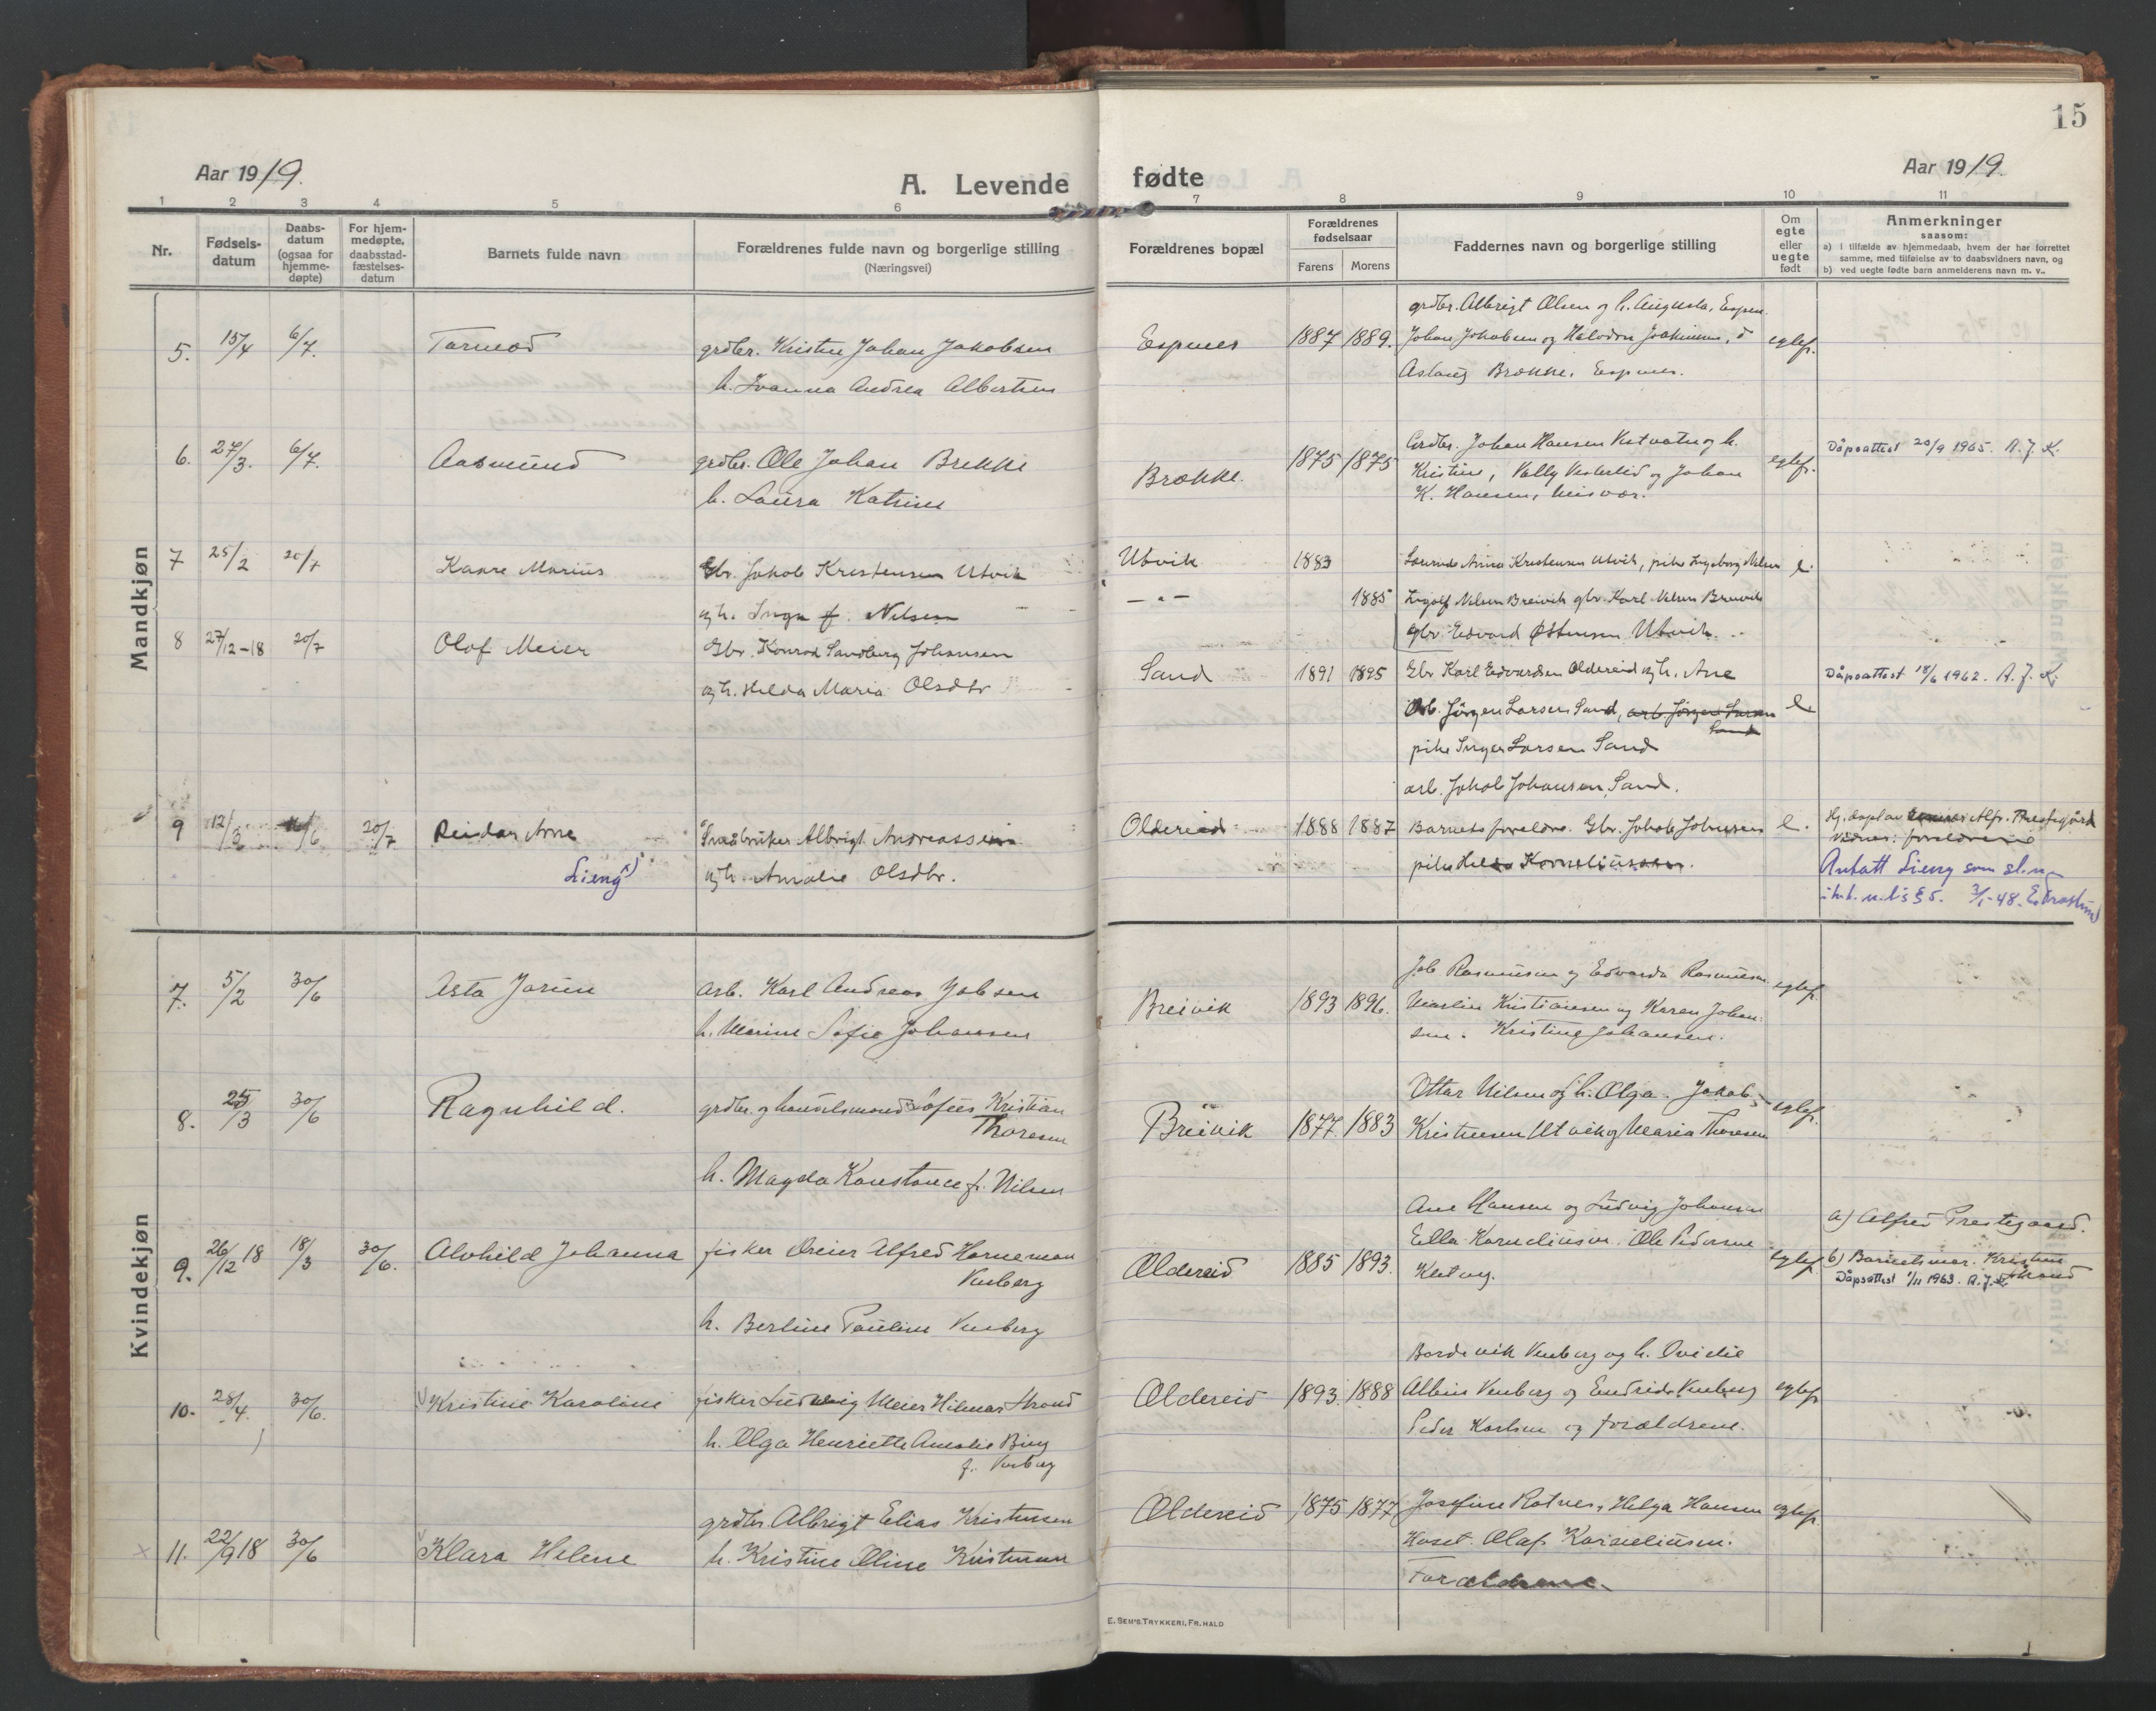 15
Aar 1919.
A. Levende fødte
Aar 1919.
1 2 3 4 5 6 7 8 9 10 11
Nr.
Fødsels-
datum
Daabs-
datum
(ogsaa for
hjemme-
døpte)
For hjem-
medøpte,
daabsstad-
fæstelses-
datum
Barnets fulde navn
Forældrenes fulde navn og borgerlige stilling
(Næringsvei)
Forældrenes bopæl
Forældrenes
fødselsaar
Farens Morens
Faddernes navn og borgerlige stilling
Om
egte
eller
uegte
født
Anmerkninger
saasom:
a) i tilfælde av hjemmedaab, hvem der har forrettet
samme, med tilføielse av to daabsvidners navn, og
b) ved uegte fødte barn anmelderens navn m. v..
Mandkjøn
5. 15/4 6/7. Tormod grdbr. Kristen Johan Jakobsen
h. Ivanna Andrea Albertsen
Espnes 1887 1889.
grdbr. Albrigt Olsen og h. Augusta, Espen.
Johan Jakobsen og Joakimsen,
Aslaug Brække, Espnes.
egtef.
6. 27/3. 6/7. Aasmund grdbr. Ole Johan Brekke
h. Laura Katrine
Brække. 1875 1875
Grdbr. Johan Hansen og h.
Kristine, Vally og Johan
K. Hansen, Misvær.
egtef.
Dåpsattest 20/9 1965. A. J. K.
7 25/2 20/7 Kaare Marius Gbr. Jakob Kristensen Utvik
og h. Inga f. Nilsen
Utvik 1883
— " — 1885
Anna Kristensen Utvik, pike Ingeborg Nilsen
Ingolf Nilsen Breivik gbr. Karl Nilsen Breivik
gbr. Edvard Østensen Utvik.
e.
8 27/12-18 20/7 Olof Meier Gbr. Konrad Sandberg Johansen
og h. Helda Maria Olsdtr
Sand 1891 1895
Gbr. Karl Edvardsen Oldereid og h. Ane
Arb. Jörgen Larsen Sand, arb. Jörgen Larsen
Sand
pike Inger Larsen Sand
arb. Jakob Johansen, Sand.
e.
Dåpsattest 18/6 1962. A. J. K.
9 12/3 /6 20/7 Reidar Arne
Lieng x)
Småbruker Albrigt Andreassen
og h. Amalie Olsdtr.
Oldereid 1888 1887
Barnets foreldre. Gbr. Jakob Johansen
pike Korneliussen.
e.
Hj. døpt av Alfr. Prestegård
Vidner: foreldrene
Antatt Lieng som sl.n.
3/1-48.
Kvindekjøn
7. 5/2 30/6 Asta Jorun arb. Karl Andreas Jobsen
h. Marine Sofie Johansen
Breivik 1893 1896.
Job Rasmussen og Edvarda Rasmussen
Martin Kristiansen og Karen Johan-
sen. Kristine Johansen.
egtef.
8. 25/3 30/6 Ragnhild. grdbr. og handelsmand Sofus Kristian
Thoresen
h. Magda Konstance f. Nilsen
Breivik 1877. 1883
Ottar Nilsen og h. Olga. Jakob
Kristensen Utvik og Maria Thoresen
egtef.
9. 26/12 18 18/3 30/6. Alvhild Johanna fisker Oreier Alfred Horneman
Venberg
h. Berline Pauline Venberg
Oldereid 1885 1893.
Ane Hansen og Ludvig Johansen
Ella Korneliussen. Ole Pedersen
egtef.
a) Alfred Prestegaard.
b) Barnets mor. Kristine
Strand
Dåpsattest 1/11 1963. A. J. K.
10. 28/4. 30/6. Kristine Karoline fisker Ludvig Meier Hilmar Strand
h. Olga Henriette Amalie Bing
f. Venberg
Oldereid 1893. 1888
Bordevik Venberg og h. Ovidie
Albin Venberg og Endride Venberg
Peder Karlsen og forældrene.
egtef
11. 22/9 18 30/6 Klara Helene grdbr. Albrigt Elias Kristensen
h. Kristine Oline Kristensen
Oldereid 1875 1877
Josefine Rotnes, Helga Hansen
Hoset. Olaf Korneliusen.
Forældrene.
egtef.
E. SEM'S TRYKKERI, FR. HALD